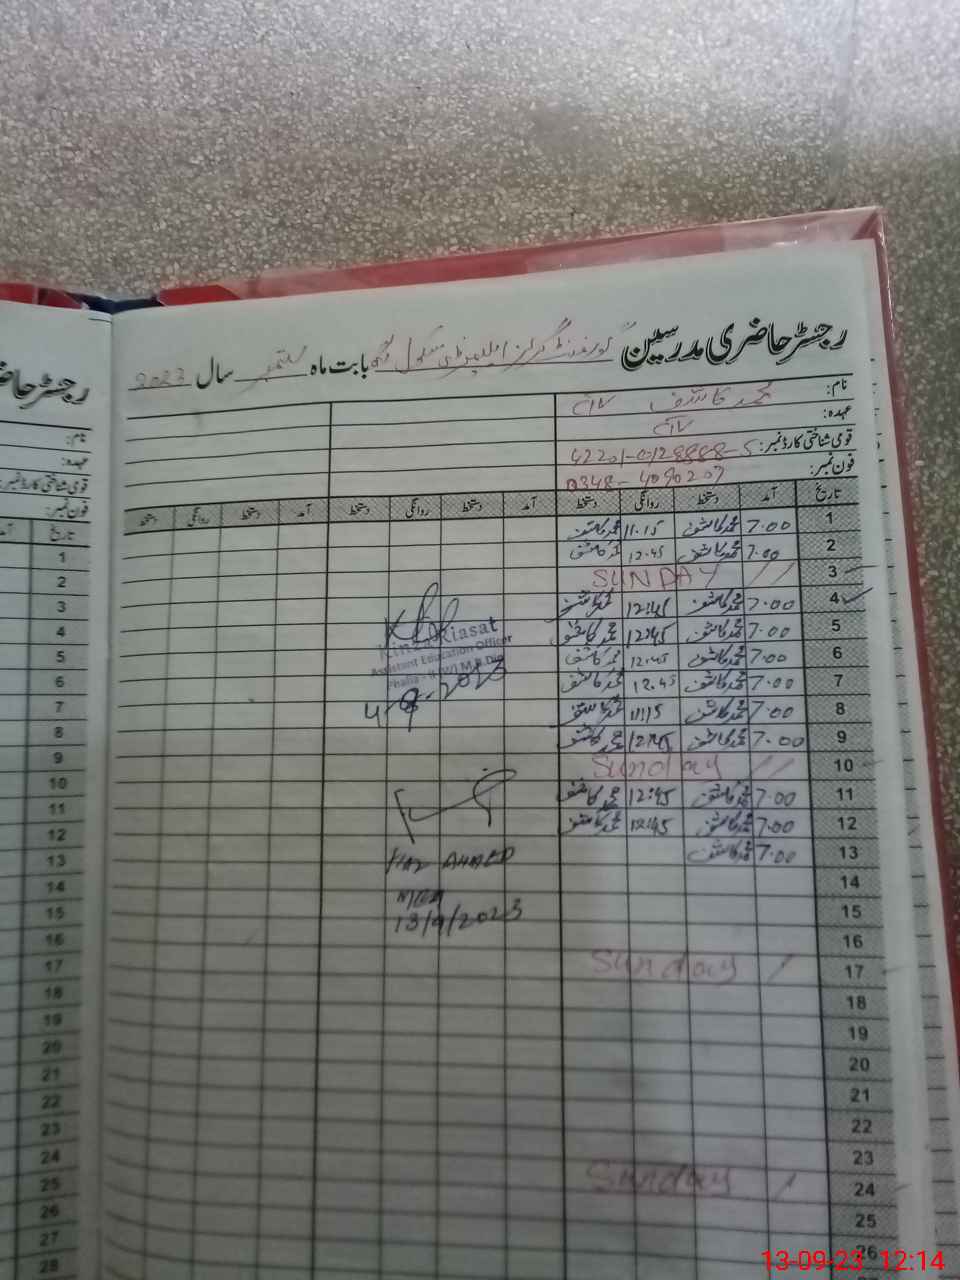 رجسٹر حاضری مدرسین گورنمنٹ گرلز ایلیمنٹری سکول بابت ماہ ستمبر سال 2023
نام: محمد کاشف
عہدہ:
قومی شناختی کارڈ نمبر: 42201-0128888-5
فون نمبر: 0348-4090207
تاریخ آمد دستخط روانگی دستخط آمد دستخط روانگی دستخط آمد دستخط روانگی دستخط
1 7.00 محمد کاشف 11.15 محمد کاشف
2 7.00 محمد کاشف 12.45 محمد کاشف
3 // SUNDAY
4 7.00 محمد کاشف 12:45 محمد کاشف
5 7.00 محمد کاشف 12:45 محمد کاشف
6 7.00 محمد کاشف 12.45 محمد کاشف
7 7.00 محمد کاشف 12.45 محمد کاشف
8 7.00 محمد کاشف 11:15 محمد کاشف
9 7.00 محمد کاشف 12:45 محمد کاشف
10 // Sunday
11 7.00 محمد کاشف 12:45 محمد کاشف
12 7.00 محمد کاشف 12:45 محمد کاشف
13 7.00 محمد کاشف
14
15
16
17 / Sunday
18
19
20
21
22
23
24 / Sunday
25
26
Kinza Riasat
Assistant Education Officer
Phalia
4-9-2023
AHMED
13/9/2023
رجسٹر
نام:
عہدہ:
قومی شناختی کارڈ نمبر:
فون نمبر:
تاریخ
1
2
3
4
5
6
7
8
9
10
11
12
13
14
15
16
17
18
19
20
21
22
23
24
25
26
27
28
13-09-23 12:14